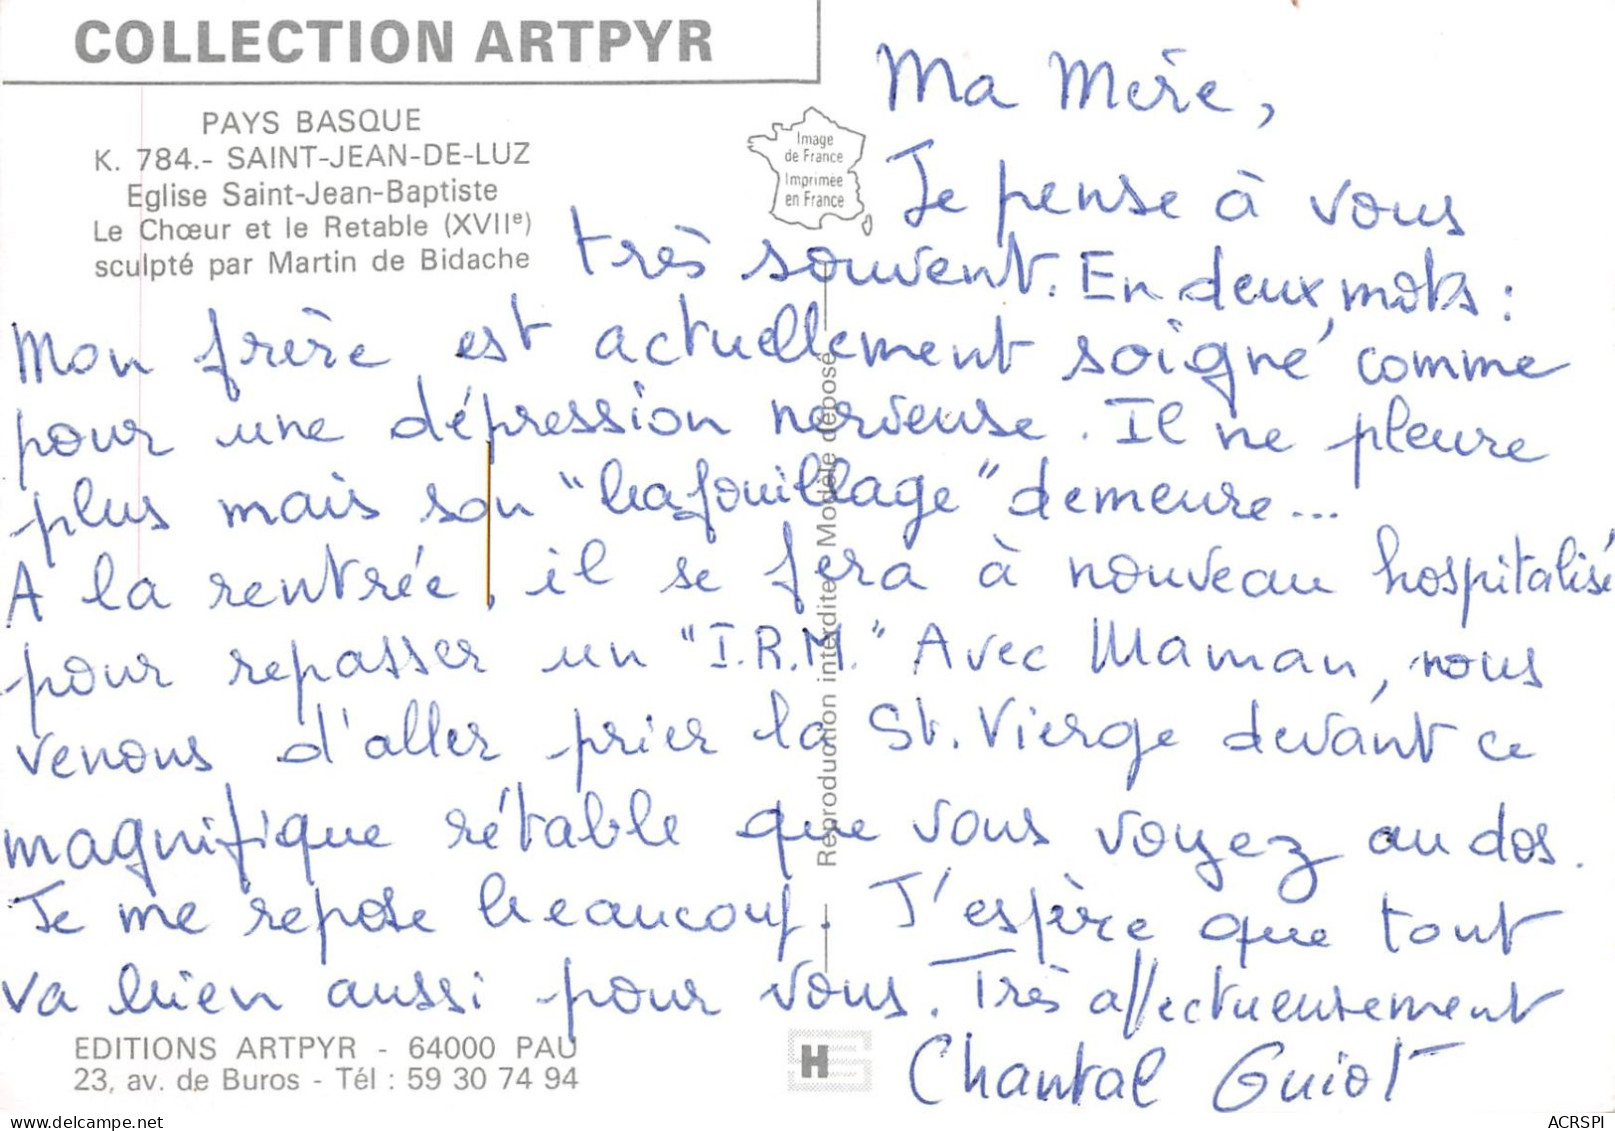 COLLECTION ARTPYR
PAYS BASQUE
K. 784.- SAINT-JEAN-DE-LUZ
Eglise Saint-Jean-Baptiste
Le Chœur et le Retable (XVIIe)
sculpté par Martin de Bidache
Image
de France
Imprimée
en France
Ma Mère,
Je pense à vous
très souvent. En deux mots :
Mon frère est actuellement soigné comme
pour une dépression nerveuse. Il ne pleure
plus mais son "bafouillage" demeure...
A la rentrée, il se fera à nouveau hospitalisé
pour repasser un "I.R.M." Avec Maman, nous
venons d'aller prier la St. Vierge devant ce
magnifique rétable que vous voyez au dos.
Je me repose beaucoup. J'espère que tout
va bien aussi pour vous. Très affectueusement
Chantal Guiot
Reproduction interdite Modèle déposé
EDITIONS ARTPYR - 64000 PAU
23, av. de Buros - Tél : 59 30 74 94
H
ACRSPI